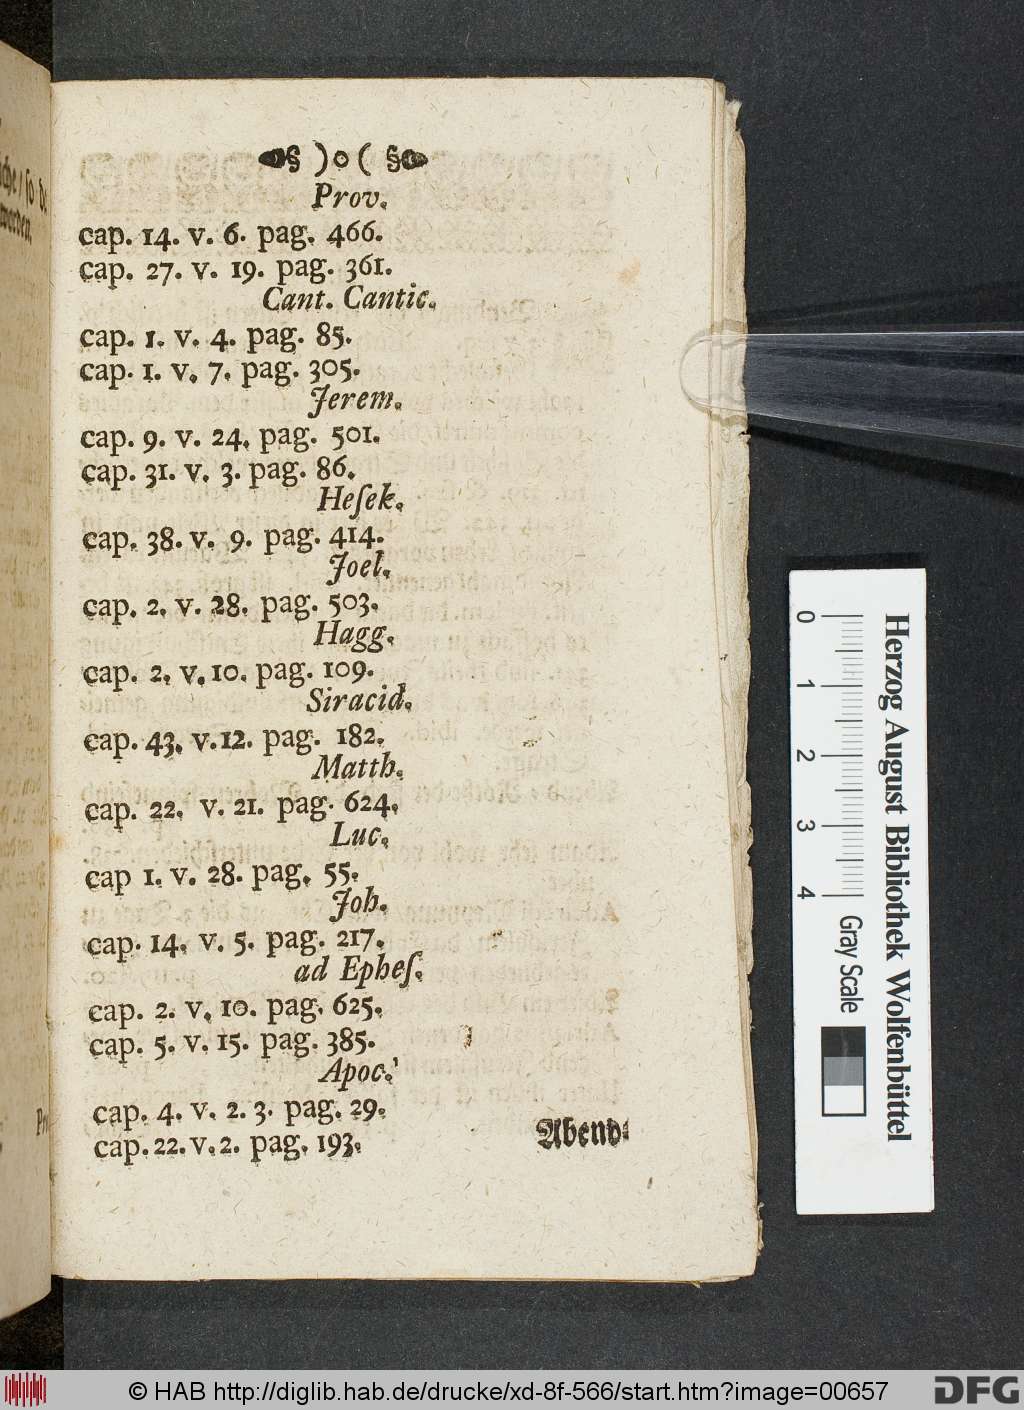 § ) o ( §
Prov.
cap. 14. v. 6. pag. 466.
cap. 27. v. 19. pag. 361.
Cant. Cantic.
cap. 1. v. 4. pag. 85.
cap. 1. v. 7. pag. 305.
Jerem.
cap. 9. v. 24. pag. 501.
cap. 31. v. 3. pag. 86.
Heſek.
cap. 38. v. 9. pag. 414.
Joel.
cap. 2. v. 28. pag. 503.
Hagg.
cap. 2. v. 10. pag. 109.
Siracid.
cap. 43. v. 12. pag. 182.
Matth.
cap. 22. v. 21. pag. 624.
Luc.
cap 1. v. 28. pag. 55.
Joh.
cap. 14. v. 5. pag. 217.
ad Epheſ.
cap. 2. v. 10. pag. 625.
cap. 5. v. 15. pag. 385.
Apoc.
cap. 4. v. 2. 3. pag. 29.
cap. 22. v. 2. pag. 193.
Abend-
Herzog August Bibliothek Wolfenbüttel
0 1 2 3 4
Gray Scale
© HAB http://diglib.hab.de/drucke/xd-8f-566/start.htm?image=00657
DFG